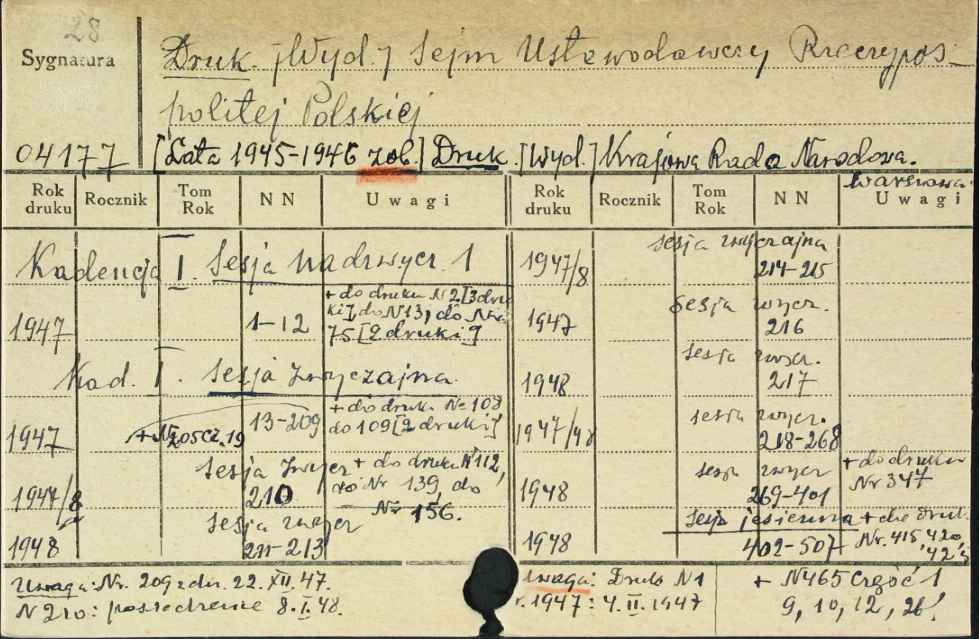 28
Sygnatura
Druk. [Wyd.] Sejm Ustawodawczy Rzeczypos-
politej Polskiej
04177
[Lata 1945-1946 zob.] Druk. [Wyd.] Krajowa Rada Narodowa.
Warszawa.
Rok druku Rocznik Tom Rok NN Uwagi
Kadencja I. Sesja nadzwycz. 1
1947 1-12 + do druku N 2 [3 dru
ki], do N 13, do
75 [2 druki]
Kad. I. Sesja zwyczajna.
1947 + N 205 cz. 19 13-209 + do druku Nr 108
do 109 [2 druki]
1947/8 Sesja zwycz + do druku N 112,
210 do Nr 139, do
Nr 156.
1948 Sesja zwycz
211-213
Uwaga: Nr. 209 z dn. 22. XII. 47.
N 210: posiedzenie 8. I. 48.
Rok druku Rocznik Tom Rok NN Uwagi
1947/8 sesja zwyczajna
214-215
1947 Sesja zwycz.
216
1948 sesja zwycz.
217
1947/48 sesja zwycz.
218-268
1948 sesja zwycz + do druku
269-401 Nr 347
1948 Sesja jesienna + do druk.
402-507 Nr. 415, 420,
Uwaga: Druk N 1
r. 1947: 4. II. 1947
+ N 465 część 1
9, 10, 12, 26.